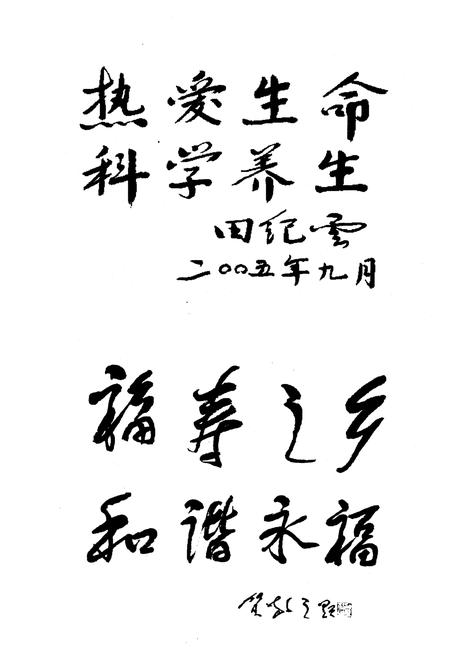 热爱生命
科学养生
田纪雲
二〇〇五年九月
福寿之乡
和谐永福
题